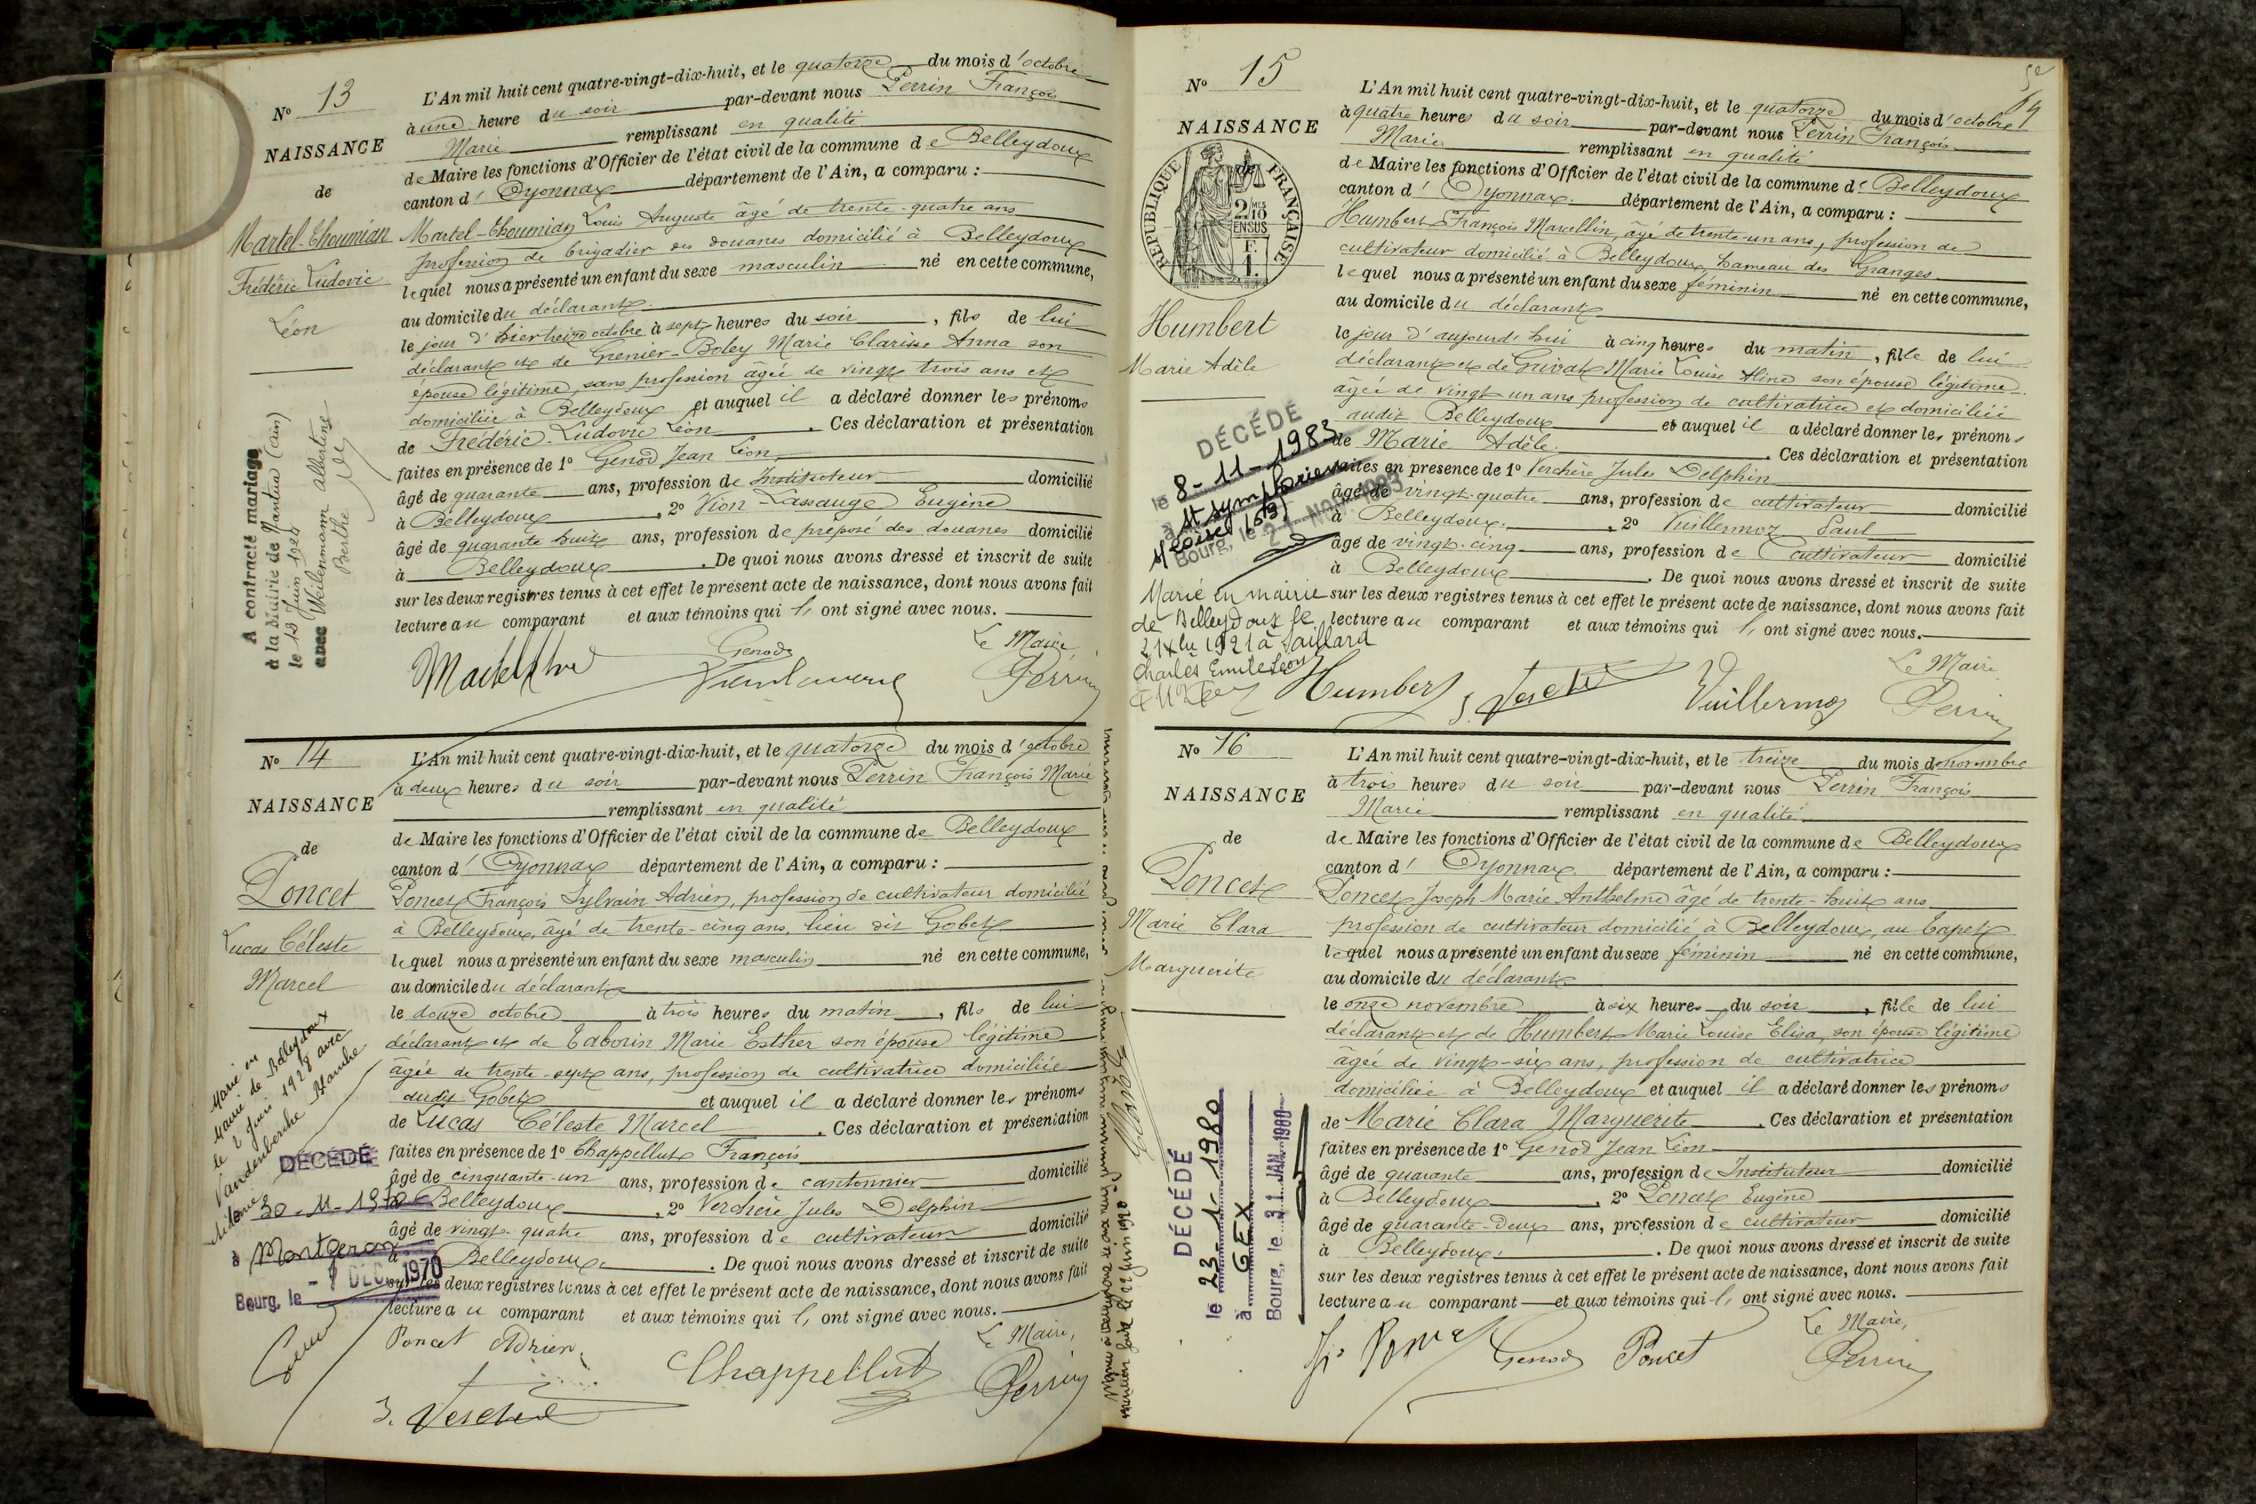 N° 13
NAISSANCE
de
Martel-Thoumian
Frédéric Ludovic
Léon
A contracté mariage
à la Mairie de Nantua (Ain)
le 13 Juin 1924
avec Weilenmann Albertine
Berthe
L'An mil huit cent quatre-vingt-dix-huit, et le quatorze du mois d'octobre
à une heure du soir par-devant nous Perrin François
Marie remplissant en qualité
de Maire les fonctions d'Officier de l'état civil de la commune de Belleydoux
canton d'Oyonnax département de l'Ain, a comparu :
Martel-Thoumian Louis Auguste âgé de trente-quatre ans
profession de brigadier des douanes domicilié à Belleydoux
lequel nous a présenté un enfant du sexe masculin né en cette commune,
au domicile du déclarant
le jour d'hier treize octobre à sept heures du soir, fils de lui
déclarant et de Grenier-Boley Marie Clarisse Anna son
épouse légitime, sans profession âgée de vingt trois ans et
domiciliée à Belleydoux et auquel il a déclaré donner les prénoms
de Frédéric-Ludovic Léon. Ces déclaration et présentation
faites en présence de 1° Genod Jean Léon,
âgé de quarante ans, profession de Instituteur domicilié
à Belleydoux, 2° Vion-Lassauge Eugène
âgé de quarante huit ans, profession de préposé des douanes domicilié
à Belleydoux. De quoi nous avons dressé et inscrit de suite
sur les deux registres tenus à cet effet le présent acte de naissance, dont nous avons fait
lecture au comparant et aux témoins qui l, ont signé avec nous.
Le Maire,
Genod
Perrin
N° 14
NAISSANCE
de
Poncet
Lucas Céleste
Marcel
Marié en
Mairie de Belleydoux
le 2 juin 1928 avec
Vandenberche Blanche
DÉCÉDÉ
le 30-11-1970
à Montgeron
Bourg, le - 7 DEC. 1970
L'An mil huit cent quatre-vingt-dix-huit, et le quatorze du mois d'octobre
à deux heures du soir par-devant nous Perrin François Marie
remplissant en qualité
de Maire les fonctions d'Officier de l'état civil de la commune de Belleydoux
canton d'Oyonnax département de l'Ain, a comparu :
Poncet François Sylvain Adrien, profession de cultivateur domicilié
à Belleydoux, âgé de trente-cinq ans, lieu dit Gobet
lequel nous a présenté un enfant du sexe masculin né en cette commune,
au domicile du déclarant
le douze octobre à trois heures du matin, fils de lui
déclarant et de Taborin Marie Esther son épouse légitime
âgée de trente-sept ans, profession de cultivatrice domiciliée
audit Gobet et auquel il a déclaré donner les prénoms
de Lucas Céleste Marcel. Ces déclaration et présentation
faites en présence de 1° Chappellut François
âgé de cinquante-un ans, profession de cantonnier domicilié
à Belleydoux, 2° Verchère Jules Delphin
âgé de vingt-quatre ans, profession de cultivateur domicilié
à Belleydoux. De quoi nous avons dressé et inscrit de suite
sur les deux registres tenus à cet effet le présent acte de naissance, dont nous avons fait
lecture au comparant et aux témoins qui l, ont signé avec nous.
Le Maire,
Poncet Adrien
Chappellut
Perrin
J. Verchère
N° 15
NAISSANCE
de
RÉPUBLIQUE FRANÇAISE
2/10 MES EN SUS
F. 1.
Humbert
Marie Adèle
DÉCÉDÉ
le 8-11-1983
à St Symphorien
Bourg, le 21 NOV. 1983
Marié en mairie
de Belleydoux le
1921 à Jaillard
Charles Emile Léon
L'An mil huit cent quatre-vingt-dix-huit, et le quatorze du mois d'octobre
à quatre heures du soir par-devant nous Perrin François
Marie remplissant en qualité
de Maire les fonctions d'Officier de l'état civil de la commune de Belleydoux
canton d'Oyonnax département de l'Ain, a comparu :
Humbert François Marcellin, âgé de trente-un ans, profession de
cultivateur domicilié à Belleydoux, hameau des Granges
lequel nous a présenté un enfant du sexe féminin né en cette commune,
au domicile du déclarant
le jour d'aujourd'hui à cinq heures du matin, fille de lui
déclarant et de Grivat Marie Louise Aline son épouse légitime
âgée de vingt-un ans profession de cultivatrice et domiciliée
audit Belleydoux et auquel il a déclaré donner les prénoms
de Marie Adèle. Ces déclaration et présentation
faites en présence de 1° Verchère Jules Delphin
âgé de vingt-quatre ans, profession de cultivateur domicilié
à Belleydoux, 2° Vuillermoz Paul
âgé de vingt-cinq ans, profession de cultivateur domicilié
à Belleydoux. De quoi nous avons dressé et inscrit de suite
sur les deux registres tenus à cet effet le présent acte de naissance, dont nous avons fait
lecture au comparant et aux témoins qui l, ont signé avec nous.
Le Maire
Humbert
Vuillermoz
Perrin
N° 16
NAISSANCE
de
Poncet
Marie Clara
Marguerite
DÉCÉDÉ
le 23-1-1980
à GEX
Bourg, le 31 JAN. 1980
L'An mil huit cent quatre-vingt-dix-huit, et le treize du mois de novembre
à trois heures du soir par-devant nous Perrin François
Marie remplissant en qualité
de Maire les fonctions d'Officier de l'état civil de la commune de Belleydoux
canton d'Oyonnax département de l'Ain, a comparu :
Poncet Joseph-Marie-Anthelme âgé de trente-huit ans
profession de cultivateur domicilié à Belleydoux, au Tapet
lequel nous a présenté un enfant du sexe féminin né en cette commune,
au domicile du déclarant
le onze novembre à six heures du soir, fille de lui
déclarant et de Humbert Marie Louise Elisa, son épouse légitime
âgée de vingt-six ans, profession de cultivatrice
domiciliée à Belleydoux et auquel il a déclaré donner les prénoms
de Marie Clara Marguerite. Ces déclaration et présentation
faites en présence de 1° Genod Jean Léon
âgé de quarante ans, profession de Instituteur domicilié
à Belleydoux, 2° Poncet Eugène
âgé de quarante-deux ans, profession de cultivateur domicilié
à Belleydoux. De quoi nous avons dressé et inscrit de suite
sur les deux registres tenus à cet effet le présent acte de naissance, dont nous avons fait
lecture au comparant et aux témoins qui l, ont signé avec nous.
Le Maire,
Genod
Poncet
Perrin